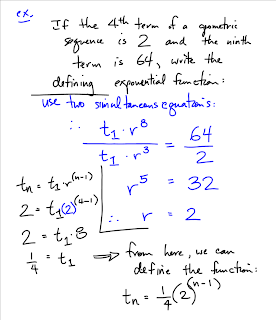 ex.
If the 4th term of a geometric
sequence is 2 and the ninth
term is 64, write the
defining exponential function:
use two simultaneous equations:
∴ t₁·r⁸ / t₁·r³ = 64 / 2
r⁵ = 32
∴ r = 2
tn = t₁·r^(n-1)
2 = t₁(2)^(4-1)
2 = t₁·8
1/4 = t₁
⇒ from here, we can
define the function:
tn = 1/4(2)^(n-1)